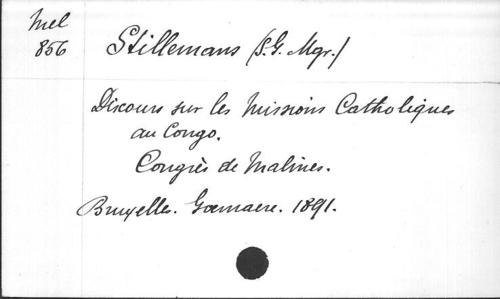 Mel
856
Stillemans (S.G. Mgr.)
Discours sur les Missions Catholiques
au Congo.
Congrès de Malines.
Bruxelles. Goemaere. 1891.